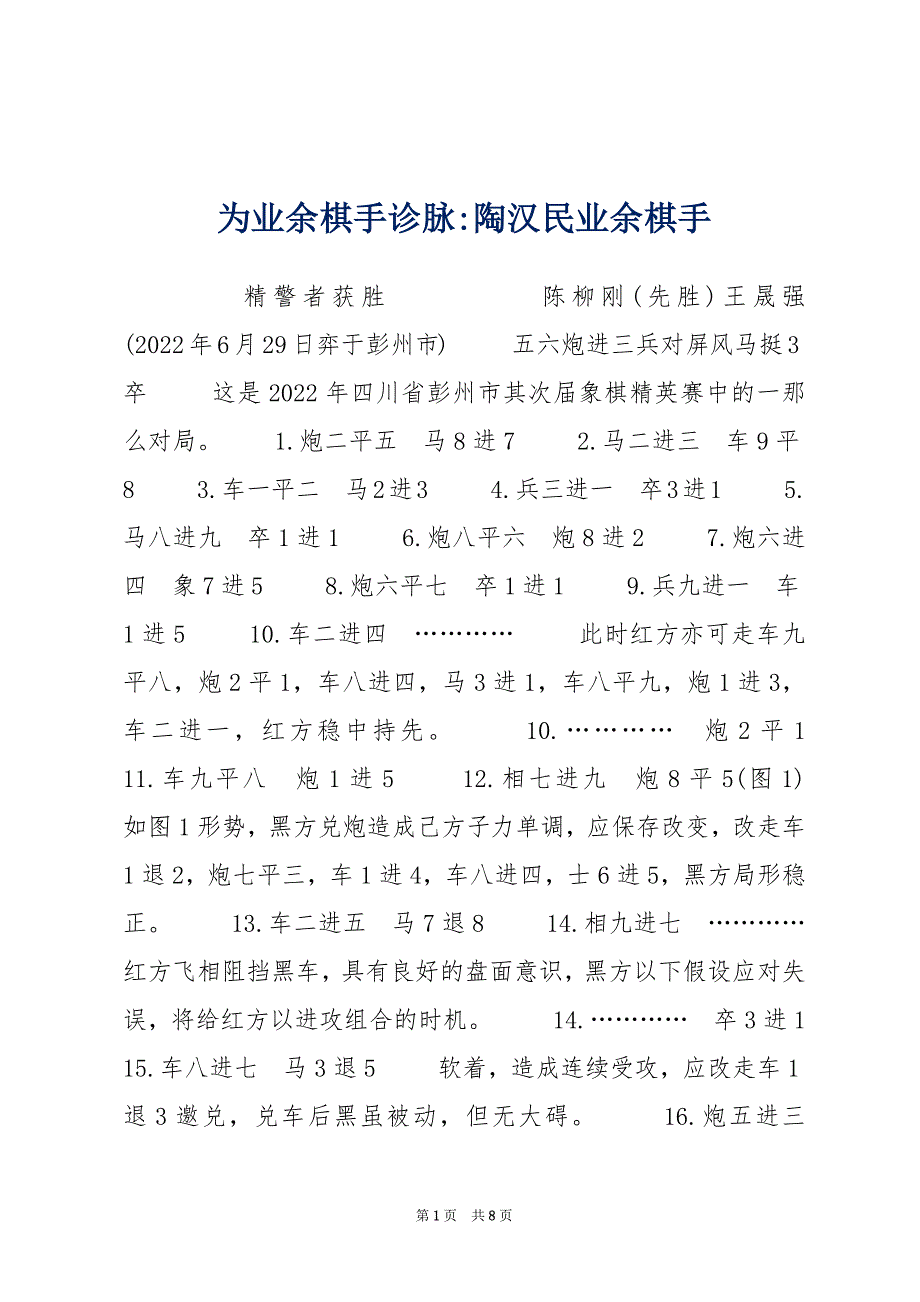 为业余棋手诊脉:陶汉民业余棋手
精警者获胜 陈柳刚(先胜)王晟强
(2022年6月29日弈于彭州市) 五六炮进三兵对屏风马挺3
卒 这是2022年四川省彭州市其次届象棋精英赛中的一那
么对局。 1.炮二平五 马8进7 2.马二进三 车9平
8 3.车一平二 马2进3 4.兵三进一 卒3进1 5.
马八进九 卒1进1 6.炮八平六 炮8进2 7.炮六进
四 象7进5 8.炮六平七 卒1进1 9.兵九进一 车
1进5 10.车二进四 ………… 此时红方亦可走车九
平八，炮2平1，车八进四，马3进1，车八平九，炮1进3，
车二进一，红方稳中持先。 10.………… 炮2平1
11.车九平八 炮1进5 12.相七进九 炮8平5(图1)
如图1形势，黑方兑炮造成己方子力单调，应保存改变，改走车
1退2，炮七平三，车1进4，车八进四，士6进5，黑方局形稳
正。 13.车二进五 马7退8 14.相九进七 …………
红方飞相阻挡黑车，具有良好的盘面意识，黑方以下假设应对失
误，将给红方以进攻组合的时机。 14.………… 卒3进1
15.车八进七 马3退5 软着，造成连续受攻，应改走车1
退3邀兑，兑车后黑虽被动，但无大碍。 16.炮五进三
第1页 共8页